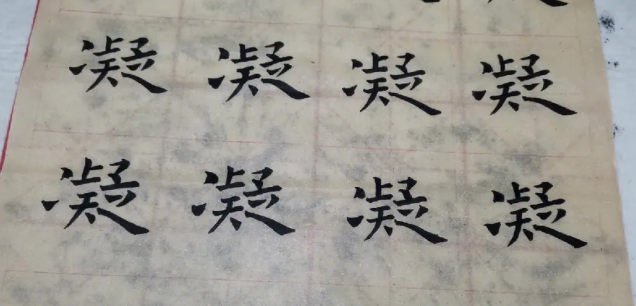 凝凝凝凝
凝凝凝凝